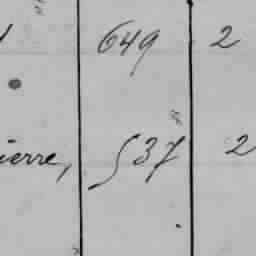 649 2
ierre, 537 2